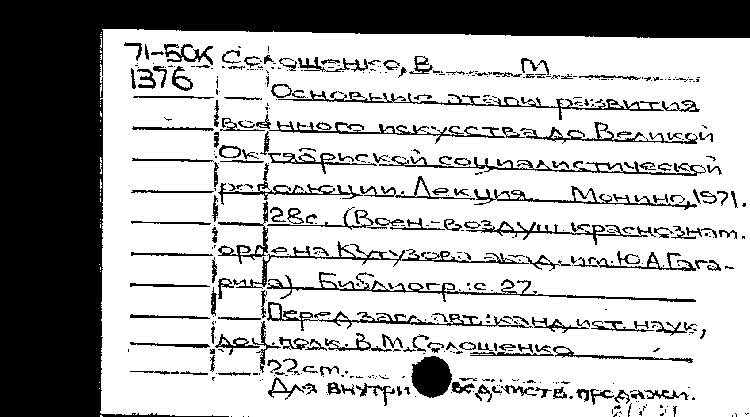 71-50К Солощенко, В М
1376
Основные этапы развития
военного искусства до Великой
Октябрьской социалистической
революции. Лекция. Монино, 1971.
28с. (Воен.-воздуш краснознам.
ордена Кутузова акад. им. Ю.А.Гага-
рина) Библиогр.: с. 27.
Перед загл. авт.: канд. ист. наук,
доц. полк. В.М. Солощенко
22 см.
Для внутриведомств. продажи.